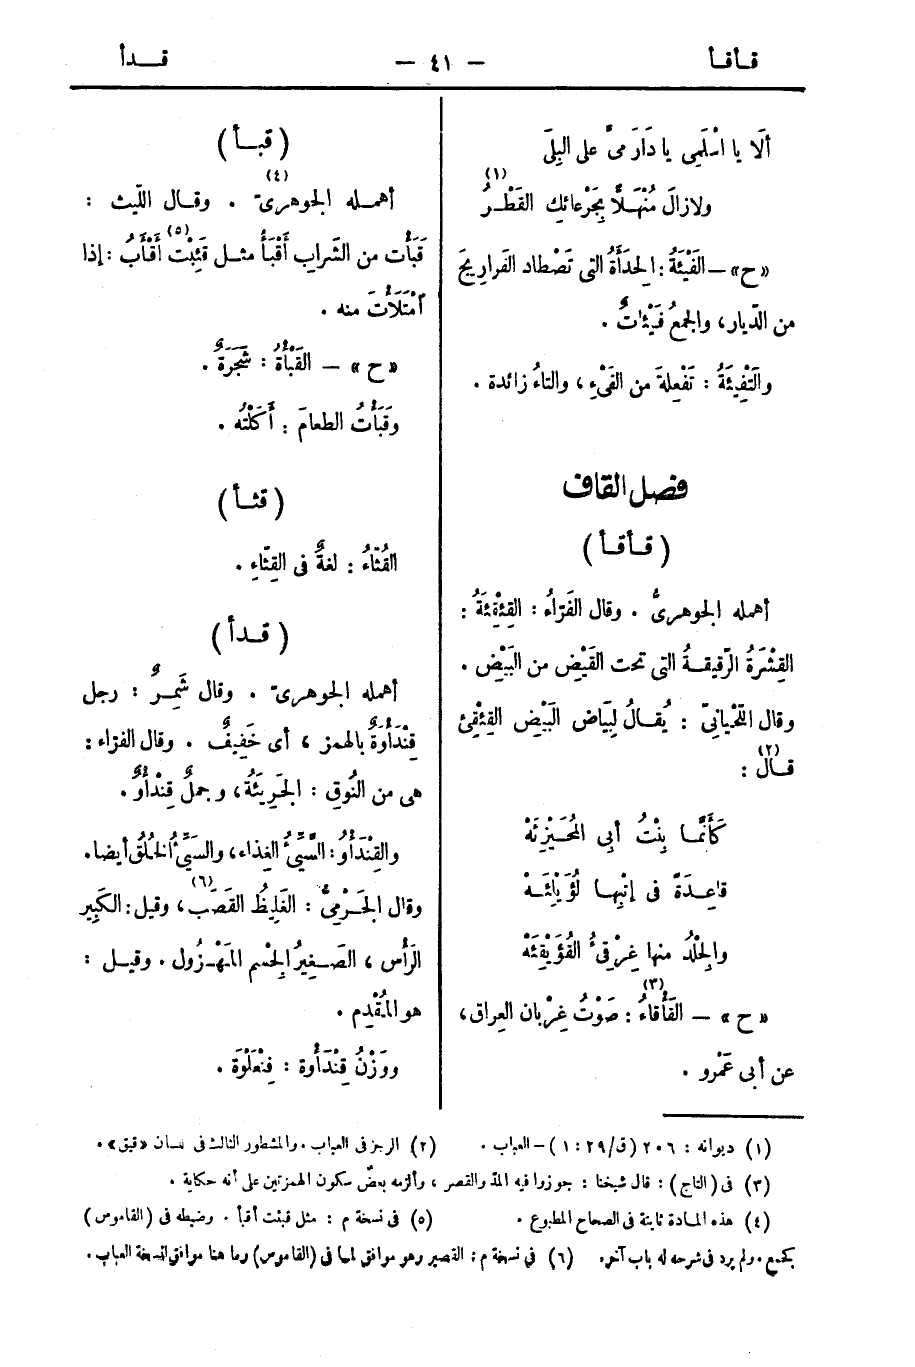 قأقأ
— ٤١ —
قــدأ
ألَا يا اسْلَمِى يا دَارَ مىَّ على البِلَى
ولازالَ مُنْهَلّاً بِجَرْعائِكِ القَطْرُ (١)
«ح» — الفَيْئَةُ : الحِدَأَةُ التى تَصْطاد الفَرارِيجَ
من الدِّيار، والجمعُ فَيْئاتٌ .
والتَفِيئَةُ : تَفْعِلةَ من الفَىْءِ ، والتاءُ زائدة .
فصل القاف
( قـأقـأ )
أهمله الجوهرىُّ . وقال الفَرّاءُ : القِئْقِئَةُ :
القِشْرَةُ الرَّقيقـةُ التى تحت القَيْضِ من البَيْضِ .
وقال اللِّحْيانِىّ : يُقـالُ لِبَياضِ البَيْضِ القِئْقِئُ
قـالَ (٢) :
كَأنَّمـا بِنْتُ أبِى المُحَيْزِئَهْ
قاعِـدَةً فى إتْبِهـا لُؤَيْلِئَـهْ
والجِلْدُ منها غِرْقِئُ القُؤَيْقِئَهْ
«ح» — القَأْقاءُ (٣) : صَوْتُ غِرْبان العِراق ،
عن أبى عَمْرو .
( قبـأ )
أهمـله الجوهرىّ (٤) . وقـال اللّيث :
قَبَأْت من الشَّرابِ أقْبَأُ مثـل قَئِبْت (٥) أقْأَبُ : إذا
امْتَلَأْتَ منه .
«ح» — القَبْأَةُ : شَجَرَةٌ .
وقَبَأْتُ الطعامَ : أَكَلْتُه .
( قثـأ )
القُثّاءُ : لغةٌ فى القِثّاءِ .
( قـدأ )
أهمله الجوهرىّ . وقال شَمِرٌ : رجل
قِنْدَأْوةٌ بالهمز ، أى خَفِيفٌ . وقال الفرّاء :
هى من النُّوقِ : الجَرِيئَةُ ، وجملٌ قِنْدَأْوٌ .
والقِنْدَأْوُ : السَّيِّئُ الغِذاء، والسَيِّئُ الخُلُقِ أيضا.
وقال الجَرْمِىُّ : الغَلِيظُ القَصَب (٦) ، وقيل : الكَبِير
الرَأْس ، الصَغِيرُ الجِسْم المَهْـزُول . وقيـل :
هو المُقْدِم .
ووَزْنُ قِنْدَأْوة : فِنْعَلْوَة .
(١) ديوانه : ٢٠٦ (ق/٢٩ : ١) — العباب .
(٢) الرجز فى العباب . والمشطور الثالث فى لسان «قيق» .
(٣) فى (التاج) : قال شيخنا : جوزوا فيه المدّ والقصر ، وألزمه بعضٌ سكون الهمزتين على أنه حكاية .
(٤) هذه المادة ثابتة فى الصحاح المطبوع .
(٥) فى نسخة م : مثل قبئت أقبأ . وضبطه فى (القاموس)
كجمع . ولم يرد فى شرحه له باب آخر.
(٦) فى نسخة م : القصير وهو موافق لما فى (القاموس) وما هنا موافق لنسخة العباب .